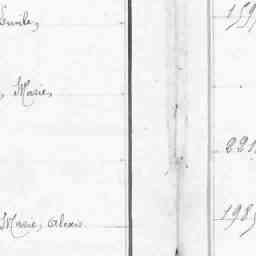 Emile, 159
, Marie,
221
Marie, Alexis 198